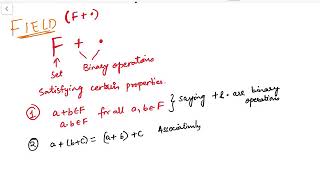 FIELD (F + •)
F + •
Set Binary operations
Satisfying certain properties.
① a+b∈F for all a,b∈F } saying + & • are binary
a·b∈F operations
② a+(b+c) = (a+b)+c Associativity